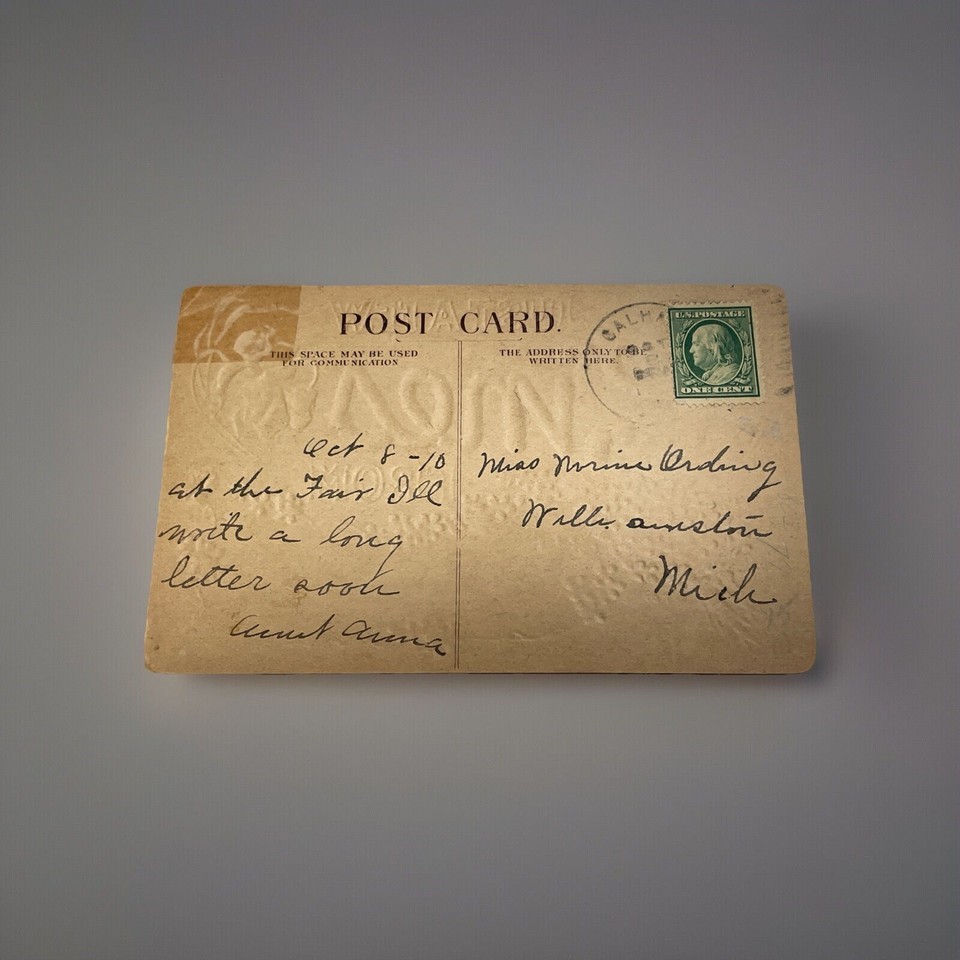 POST CARD.
THIS SPACE MAY BE USED
FOR COMMUNICATION
THE ADDRESS ONLY TO BE
WRITTEN HERE.
CALHA
U.S. POSTAGE
ONE CENT
Oct 8-10
at the Fair Ill
write a long
letter soon
Aunt Anna
Miss Norine Ording
Williamston
Mich